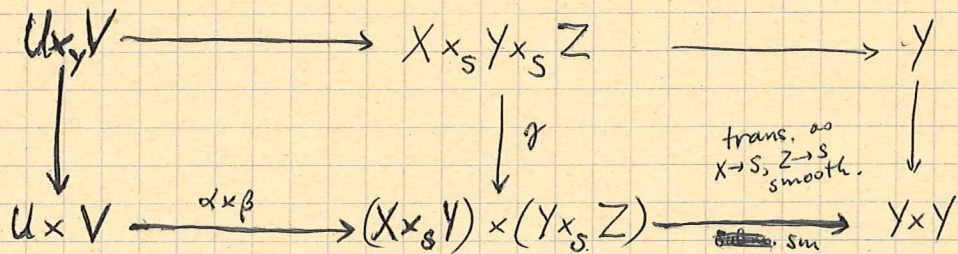 U×_Y V X ×_S Y ×_S Z Y
γ
trans. as
X→S, Z→S
smooth.
U × V α×β (X×_S Y) × (Y×_S Z) sm Y×Y